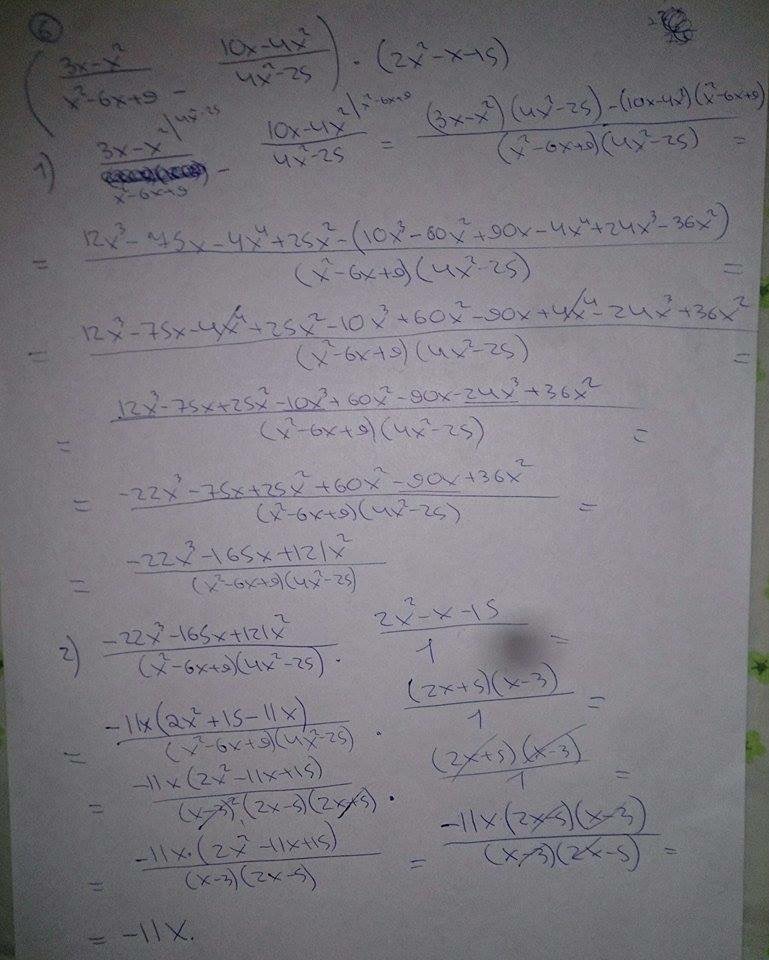 6
( (3x-x²)/(x²-6x+9) - (10x-4x²)/(4x²-25) ) · (2x²-x-15)
1) (3x-x²)/(x²-6x+9) |4x²-25 - (10x-4x²)/(4x²-25) |x²-6x+9 = ((3x-x²)(4x²-25)-(10x-4x²)(x²-6x+9))/((x²-6x+9)(4x²-25)) =
= (12x³-75x-4x⁴+25x²-(10x³-60x²+90x-4x⁴+24x³-36x²))/((x²-6x+9)(4x²-25)) =
= (12x³-75x-4x⁴+25x²-10x³+60x²-90x+4x⁴-24x³+36x²)/((x²-6x+9)(4x²-25)) =
= (12x³-75x+25x²-10x³+60x²-90x-24x³+36x²)/((x²-6x+9)(4x²-25)) =
= (-22x³-75x+25x²+60x²-90x+36x²)/((x²-6x+9)(4x²-25)) =
= (-22x³-165x+121x²)/((x²-6x+9)(4x²-25))
2) (-22x³-165x+121x²)/((x²-6x+9)(4x²-25)) · (2x²-x-15)/1 =
= (-11x(2x²+15-11x))/((x²-6x+9)(4x²-25)) · ((2x+5)(x-3))/1 =
= (-11x(2x²-11x+15))/((x-3)²(2x-5)(2x+5)) · ((2x+5)(x-3))/1 =
= (-11x·(2x²-11x+15))/((x-3)(2x-5)) = (-11x·(2x-5)(x-3))/((x-3)(2x-5)) =
= -11x.